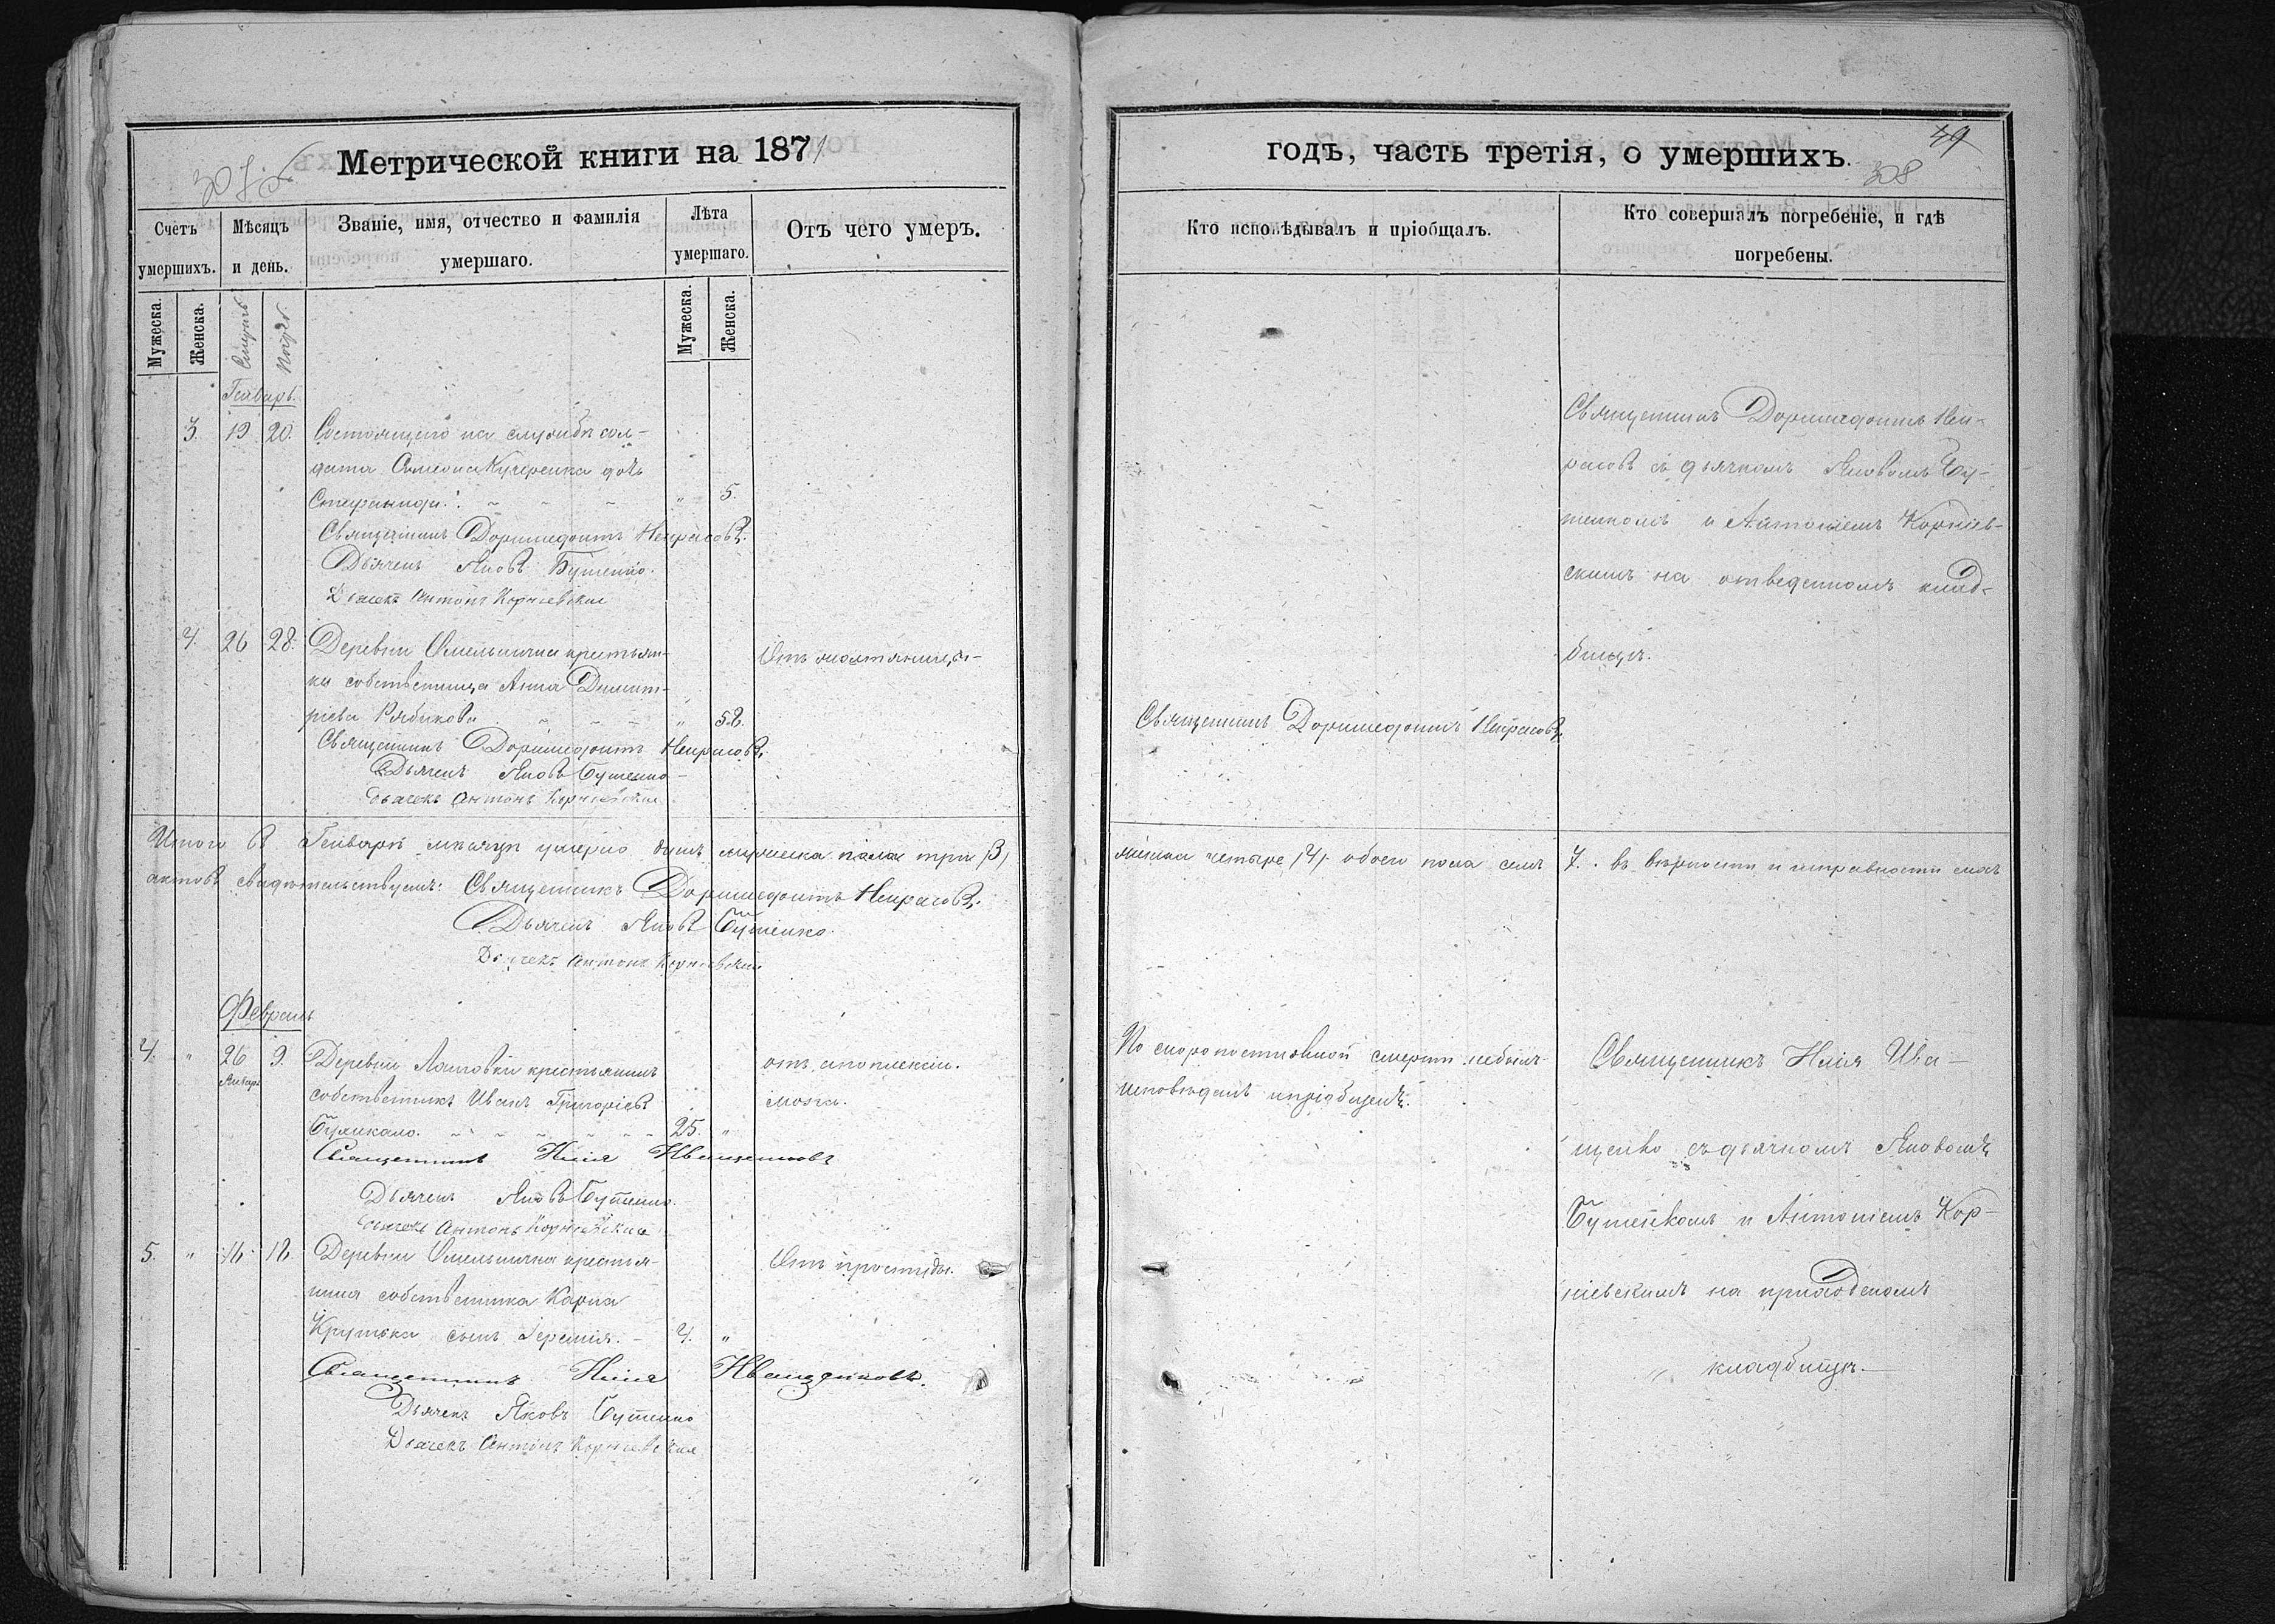 Метрической книги на 1871
Счетъ умершихъ.
Мѣсяцъ и день.
Званіе, имя, отчество и фамилія умершаго.
Лѣта умершаго.
Отъ чего умеръ.
Мужеска.
Женска.
Мужеска.
Женска.
Генварь.
3. 19 20. Состоящаго на службѣ сол-
дата Симеона Кучеренка дочь
Стефанида. " 5.
Священникъ Доримедонтъ Некрасовъ.
Дьячекъ Яковъ Бутенко.
Дьячекъ Антонъ Корніевскій
4. 26 28. Деревни Омельничка крестьян-
ка собственница Анна Димит-
ріева Рябикова " 58.
Священникъ Доримедонтъ Некрасовъ.
Дьячекъ Яковъ Бутенко
Дьячекъ Антонъ Корніевскій
Итого въ Генварѣ мѣсяцѣ умерло душъ мужеска пола три /3/
актовъ свидѣтельствуемъ: Священникъ Доримедонтъ Некрасовъ.
Дьячекъ Яковъ Бутенко.
Дьячекъ Антонъ Корніевскій
Февраль
4. " 26 9. Деревни крестьянинъ отъ апоплексіи
Январ собственникъ Иванъ Григоріевъ мозга.
25. "
Священникъ Илія Иващенковъ
Дьячекъ Яковъ Бутенко.
Дьячекъ Антонъ Корніевскій
5. " 16 18 Деревни Омельничка крестья- Отъ простуды.
нина собственника Карпа
Крутька сынъ Іеремія. 4. "
Священникъ Илія Иващенковъ.
Дьячекъ Яковъ Бутенко
Дьячекъ Антонъ Корніевскій
годъ, часть третія, о умершихъ.
49
308
Кто исповѣдывалъ и пріобщалъ.
Кто совершалъ погребеніе, и гдѣ погребены.
Священникъ Доримедонтъ Нек-
расовъ съ дьячкомъ Яковомъ Бу-
тенкомъ и Антоніемъ Корніев-
скимъ на отведенномъ клад-
бищѣ.
Священникъ Доримедонтъ Некрасовъ.
женска четыре /4/. обоего пола семь 7. въ вѣрности и исправности сихъ
По скоропостижной смерти небылъ
исповѣданъ ипріобщенъ.
Священникъ Илія Ива-
щенко съ дьячкомъ Яковомъ
Бутенкомъ и Антоніемъ Кор-
ніевскимъ на приходскомъ
кладбищѣ.